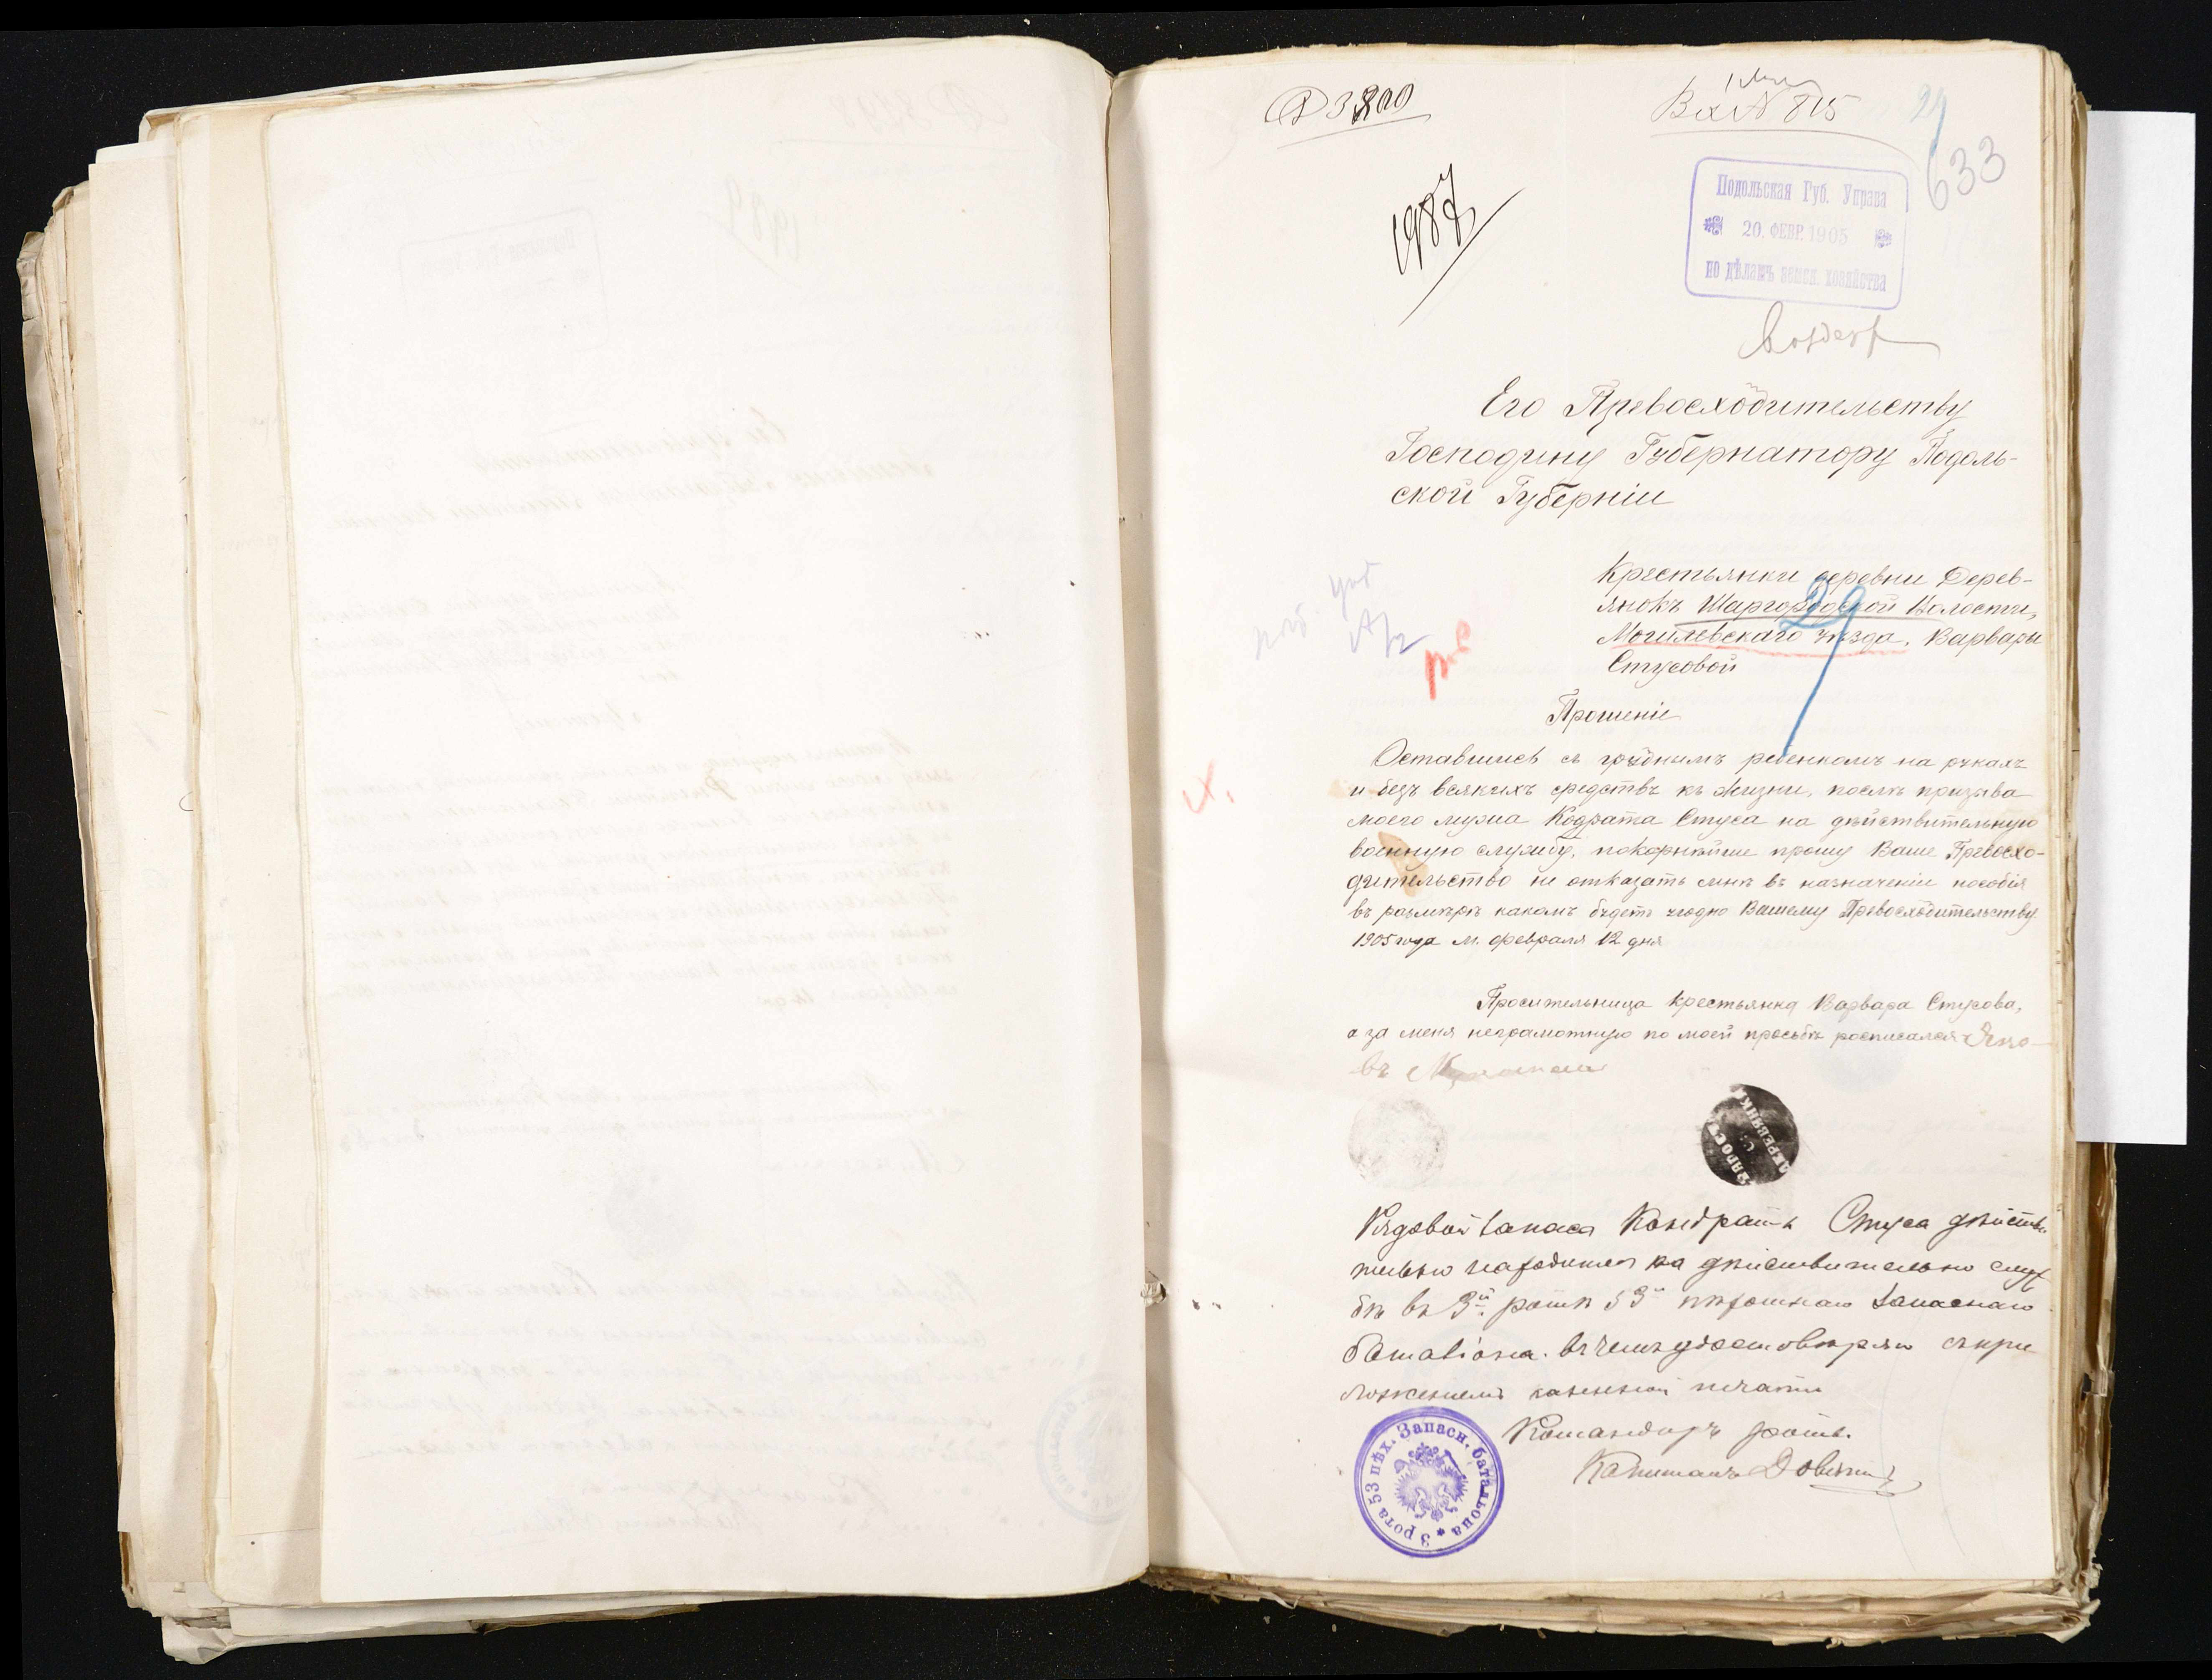 3800
Вх № 815
29
633
1987
Подольская Губ. Управа
20. ФЕВР. 1905
по дѣламъ земск. хозяйства
Его Превосходительству
Господину Губернатору Подоль-
ской Губерніи
Крестьянки деревни Дерев-
янокъ Шаргородской Волости,
Могилевскаго уѣзда, Варвары
Стусовой
29
Прошеніе
Оставшись съ груднымъ ребенкомъ на рукахъ
и безъ всякихъ средствъ къ жизни, послѣ призыва
моего мужа Кодрата Стуса на дѣйствительную
военную службу, покорнѣйше прошу Ваше Превосхо-
дительство не отказать мнѣ въ назначеніи пособія
въ размѣрѣ какомъ будетъ угодно Вашему Превосходительству
1905 года м. февраля 12 дня
Просительница крестьянка Варвара Стусова,
а за меня неграмотную по моей просьбѣ росписался Яко-
въ
Рядовой запаса Кондратъ Стуса дѣйстви-
тельно находится на дѣйствительно служ
бѣ въ 3й ротѣ 53й пѣхотнаго запаснаго
баталіона. въ чемъ удостовѣряю съ при
ложеніемъ казенной печати
Командиръ роты.
Капитанъ
3 рота 53 пѣх. Запасн. батальона